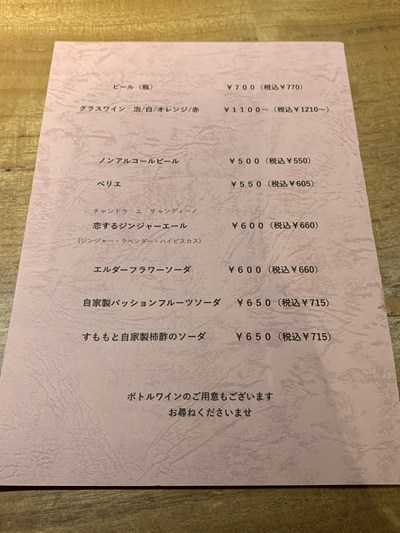 ビール（瓶） ￥７００（税込￥770）
グラスワイン 泡/白/オレンジ/赤 ￥１１００～（税込￥1210～）
ノンアルコールビール ￥５００（税込￥550）
ペリエ ￥５５０（税込￥605）
チャンドラ エ サャンディーノ
恋するジンジャーエール ￥６００（税込￥660）
(ジンジャー・ラベンダー・ハイビスカス)
エルダーフラワーソーダ ￥６００（税込￥660）
自家製パッションフルーツソーダ ￥６５０（税込￥715）
すももと自家製柿酢のソーダ ￥６５０（税込￥715）
ボトルワインのご用意もございます
お尋ねくださいませ